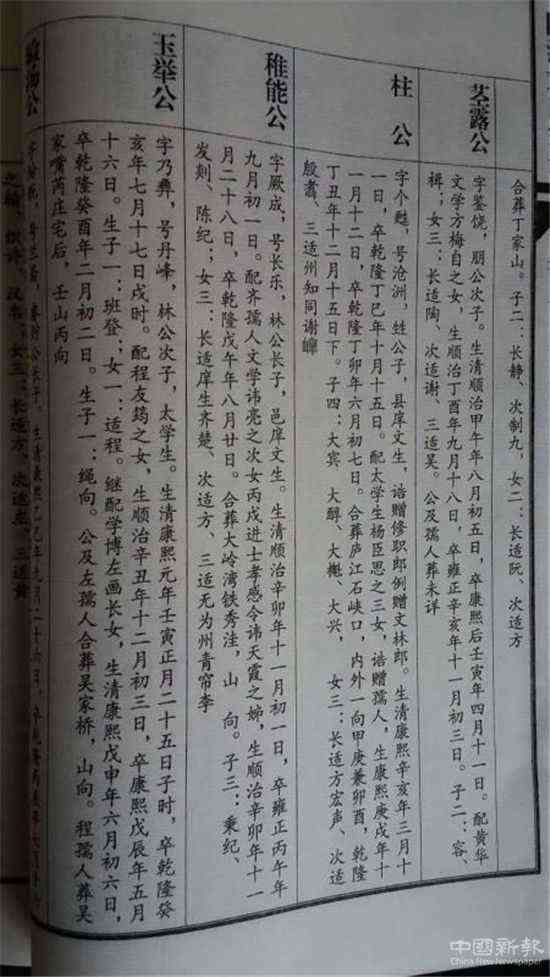 合葬丁家山。子二：长静、次制九，女二：长适阮、次适方
苤露公
字鉴饶，朋公次子。生清顺治甲午年八月初五日，卒康熙后壬寅年四月十一日。配黄华
文学方梅自之女，生顺治丁酉年九月十八日，卒雍正辛亥年十一月初三日。子二：容、
楫；女三：长适陶、次适谢、三适吴。公及孺人葬未详
柱 公
字个甦，号沧洲，甡公子，县庠文生，诰赠修职郎例赠文林郎。生清康熙辛亥年三月十
一日，卒乾隆丁巳年十月十五日。配太学生杨臣思之三女，诰赠孺人，生康熙庚戌年十
一月十二日，卒乾隆丁卯年六月初七日。合葬庐江石峡口，内外一向甲庚兼卯酉，乾隆
丁丑年十二月十五日下。子四：大宾、大醇、大樾、大兴， 女三：长适方宏声、次适
殷翥、三适州知同谢
稚能公
字厥成，号长乐，林公长子，邑庠文生。生清顺治辛卯年十一月初一日，卒雍正丙午年
九月初一日。配齐孺人文学讳亮之次女丙戌进士孝感令讳天霞之姊，生顺治辛卯年十一
月二十八日，卒乾隆戊午年八月廿日。合葬大岭湾铁秀洼，山 向。子三：乘纪、
发剡、陈纪；女三：长适庠生齐楚、次适方、三适无为州青帘李
玉举公
字乃彝，号丹峰，林公次子，太学生。生清康熙元年壬寅正月二十五日子时，卒乾隆癸
亥年七月十七日戌时。配程友筠之女，生顺治辛丑年十二月初三日，卒康熙戊辰年五月
十六日。生子一：班登；女一：适程。继配学博左画长女，生清康熙戊申年六月初六日，
卒乾隆癸酉年二月初二日。生子一：绳向。公及左孺人合葬吴家桥，山向。程孺人葬吴
家嘴芮庄宅后，壬山丙向
公
公长子。生清康熙乙巳年九月二十六日，
女三：长适方、次适左、三适黄
中國新報
China New Newspaper